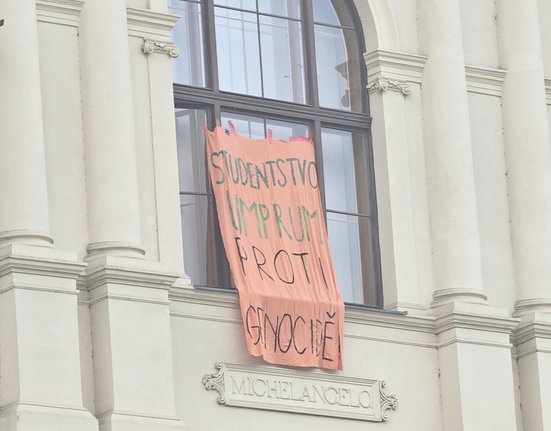 STUDENTSTVO
UMPRUM
PROTI
GENOCIDĚ!
MICHELANGELO